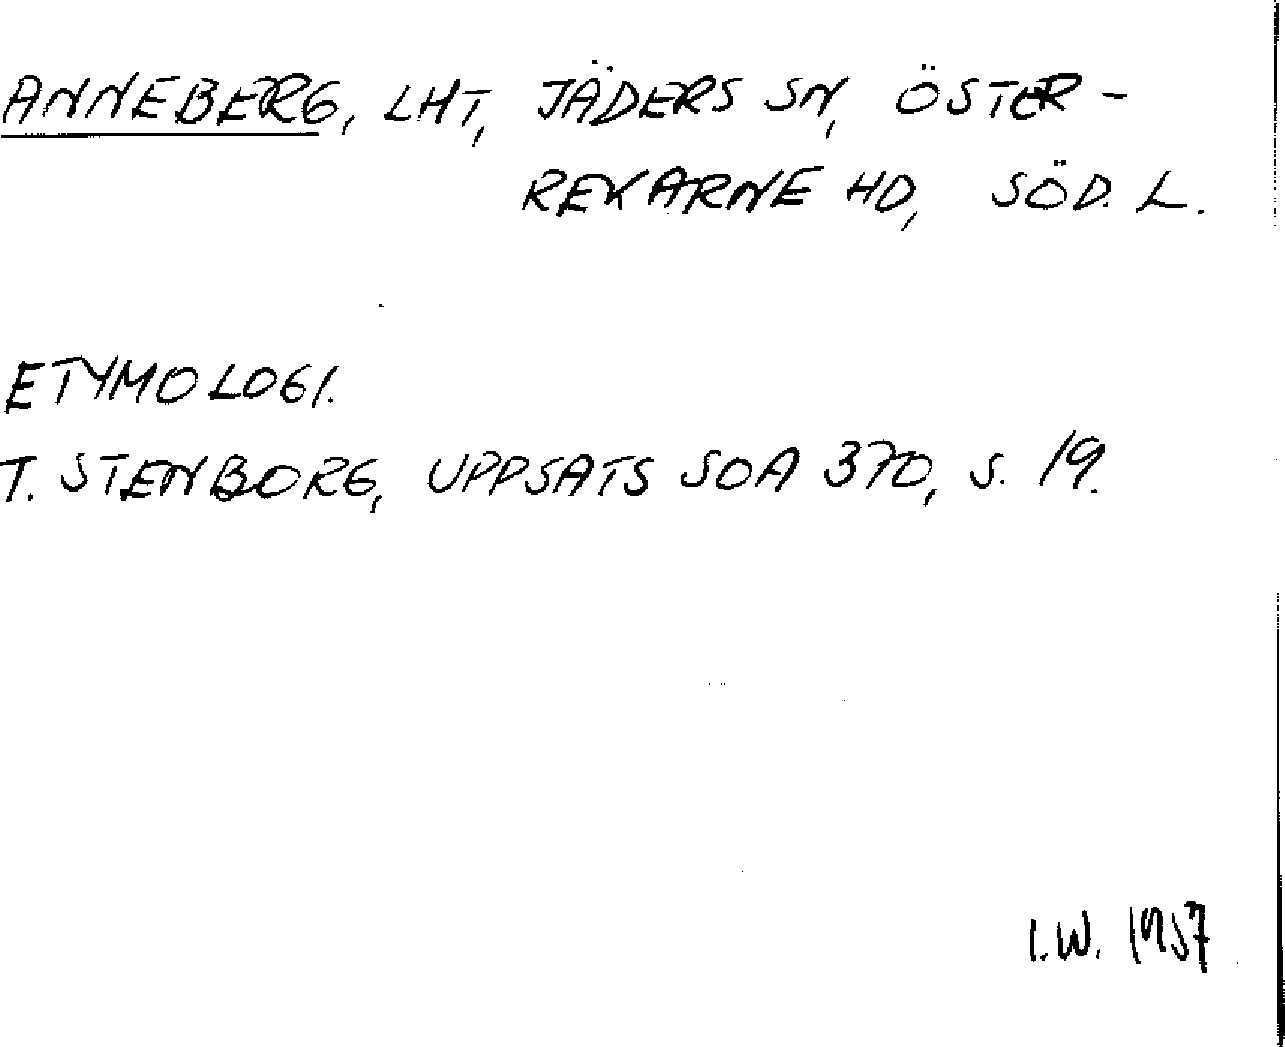 ANNEBERG, LHT, JÄDERS SN, ÖSTER-
REKARNE HD, SÖD. L.
ETYMOLOGI.
T. STENBORG, UPPSATS SOA 370, S. 19.
I.W. 1957